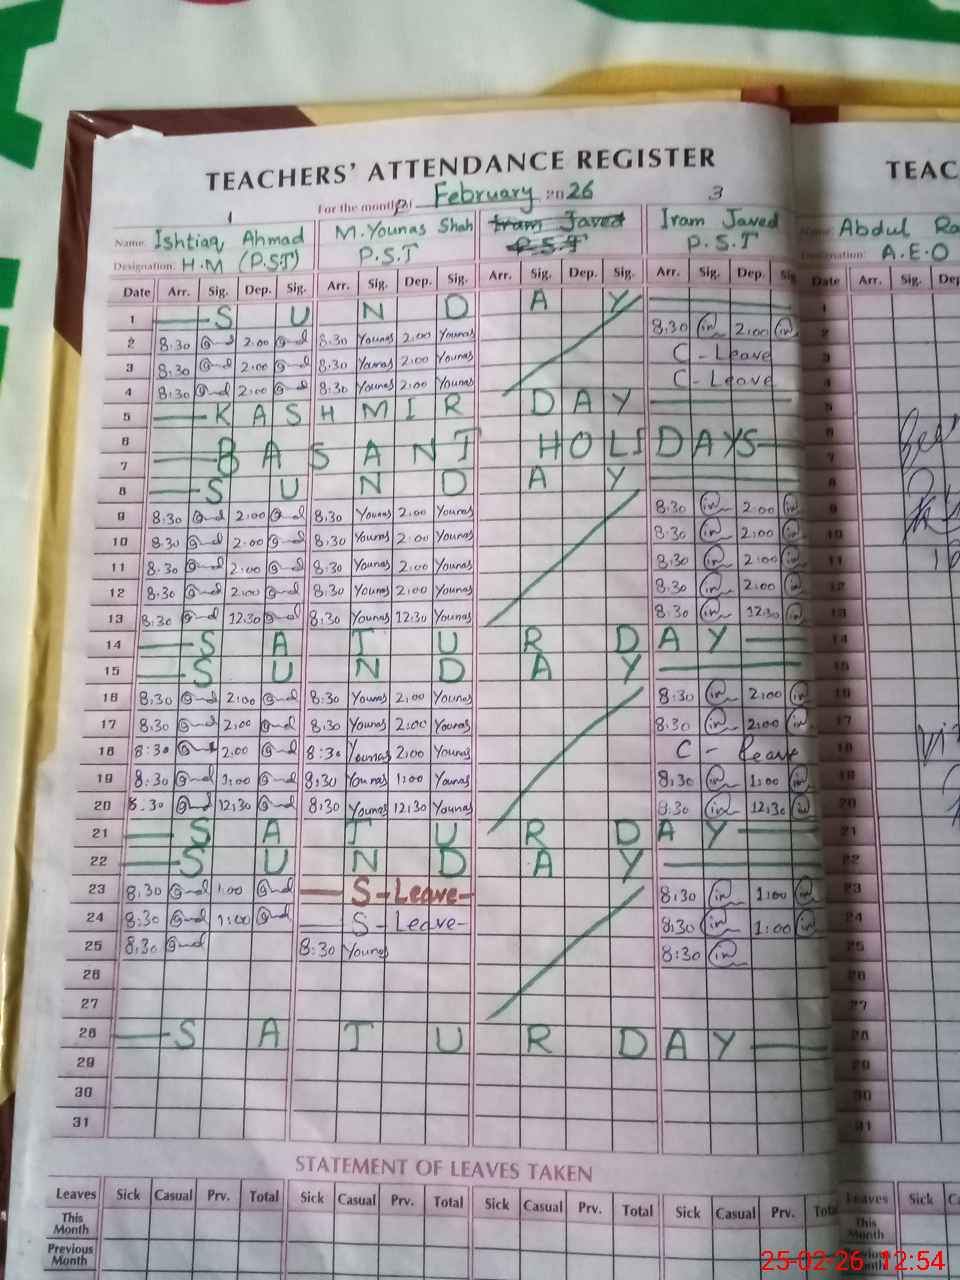 TEACHERS' ATTENDANCE REGISTER
For the month of February 2026
1 2 3
Name: Ishtiaq Ahmad M. Younas Shah Iram Javed Iram Javed
Designation: H.M (P.S.T) P.S.T P.S.T P.S.T
Date Arr. Sig. Dep. Sig. Arr. Sig. Dep. Sig. Arr. Sig. Dep. Sig. Arr. Sig. Dep. Sig.
1 S U N D A Y
2 8:30 2:00 8:30 Younas 2:00 Younas 8:30 2:00
3 8:30 2:00 8:30 Younas 2:00 Younas C - Leave
4 8:30 2:00 8:30 Younas 2:00 Younas C - Leave
5 K A S H M I R D A Y
6
7 B A S A N T H O L I D A Y S
8 S U N D A Y
9 8:30 2:00 8:30 Younas 2:00 Younas 8:30 2:00
10 8:30 2:00 8:30 Younas 2:00 Younas 8:30 2:00
11 8:30 2:00 8:30 Younas 2:00 Younas 8:30 2:00
12 8:30 2:00 8:30 Younas 2:00 Younas 8:30 2:00
13 8:30 12:30 8:30 Younas 12:30 Younas 8:30 12:30
14 S A T U R D A Y
15 S U N D A Y
16 8:30 2:00 8:30 Younas 2:00 Younas 8:30 2:00
17 8:30 2:00 8:30 Younas 2:00 Younas 8:30 2:00
18 8:30 2:00 8:30 Younas 2:00 Younas C - leave
19 8:30 1:00 8:30 Younas 1:00 Younas 8:30 1:00
20 8:30 12:30 8:30 Younas 12:30 Younas 8:30 12:30
21 S A T U R D A Y
22 S U N D A Y
23 8:30 1:00 S - Leave 8:30 1:00
24 8:30 1:00 S - Leave 8:30 1:00
25 8:30 8:30 Younas 8:30
26
27
28 S A T U R D A Y
29
30
31
STATEMENT OF LEAVES TAKEN
Leaves Sick Casual Prv. Total Sick Casual Prv. Total Sick Casual Prv. Total Sick Casual Prv. Total
This Month
Previous Month
TEAC
Name: Abdul Ra
Designation: A.E.O
Date Arr. Sig. Dep
1
2
3
4
5
6
7
8
9
10
11
12
13
14
15
16
17
18
19
20
21
22
23
24
25
26
27
28
29
30
31
Leaves Sick Ca
This Month
Previous Month
25-02-26 12:54